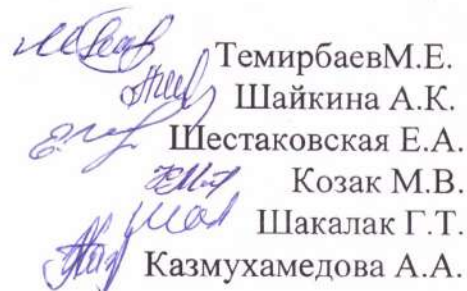 ТемирбаевМ.Е.
Шайкина А.К.
Шестаковская Е.А.
Козак М.В.
Шакалак Г.Т.
Казмухамедова А.А.